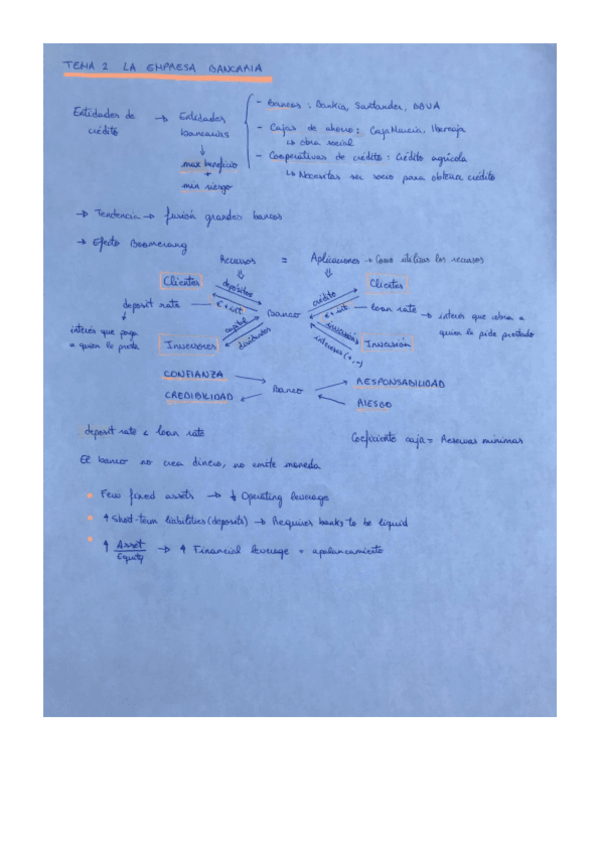 TEMA 2 LA EMPRESA BANCARIA
Entidades de crédito → Entidades bancarias
- Bancos : Bankia, Santander, BBVA
- Cajas de ahorro : CajaMurcia, Ibercaja
↳ obra social
- Cooperativas de crédito : Crédito agrícola
↳ Necesitas ser socio para obtener crédito
max beneficio
+
min riesgo
→ Tendencia → fusión grandes bancos
→ Efecto Boomerang
Recursos = Aplicaciones → Como utilizar los recursos
Clientes
depósitos
€ + int
deposit rate
interés que paga
a quien le presta
Inversores
capital
dividendos
Banco
crédito
€ + int
Clientes
loan rate → interés que cobra a
quien le pide prestado
inversión
intereses (+, -)
Inversión
CONFIANZA
CREDIBILIDAD
Banco
RESPONSABILIDAD
RIESGO
deposit rate < loan rate
Coeficiente caja = Reservas mínimas
El banco no crea dinero, no emite moneda
• Few fixed assets → ↓ Operating leverage
• ↑ Short-term liabilities (deposits) → Requires banks to be liquid
• ↑ Asset / Equity → ↑ Financial leverage = apalancamiento